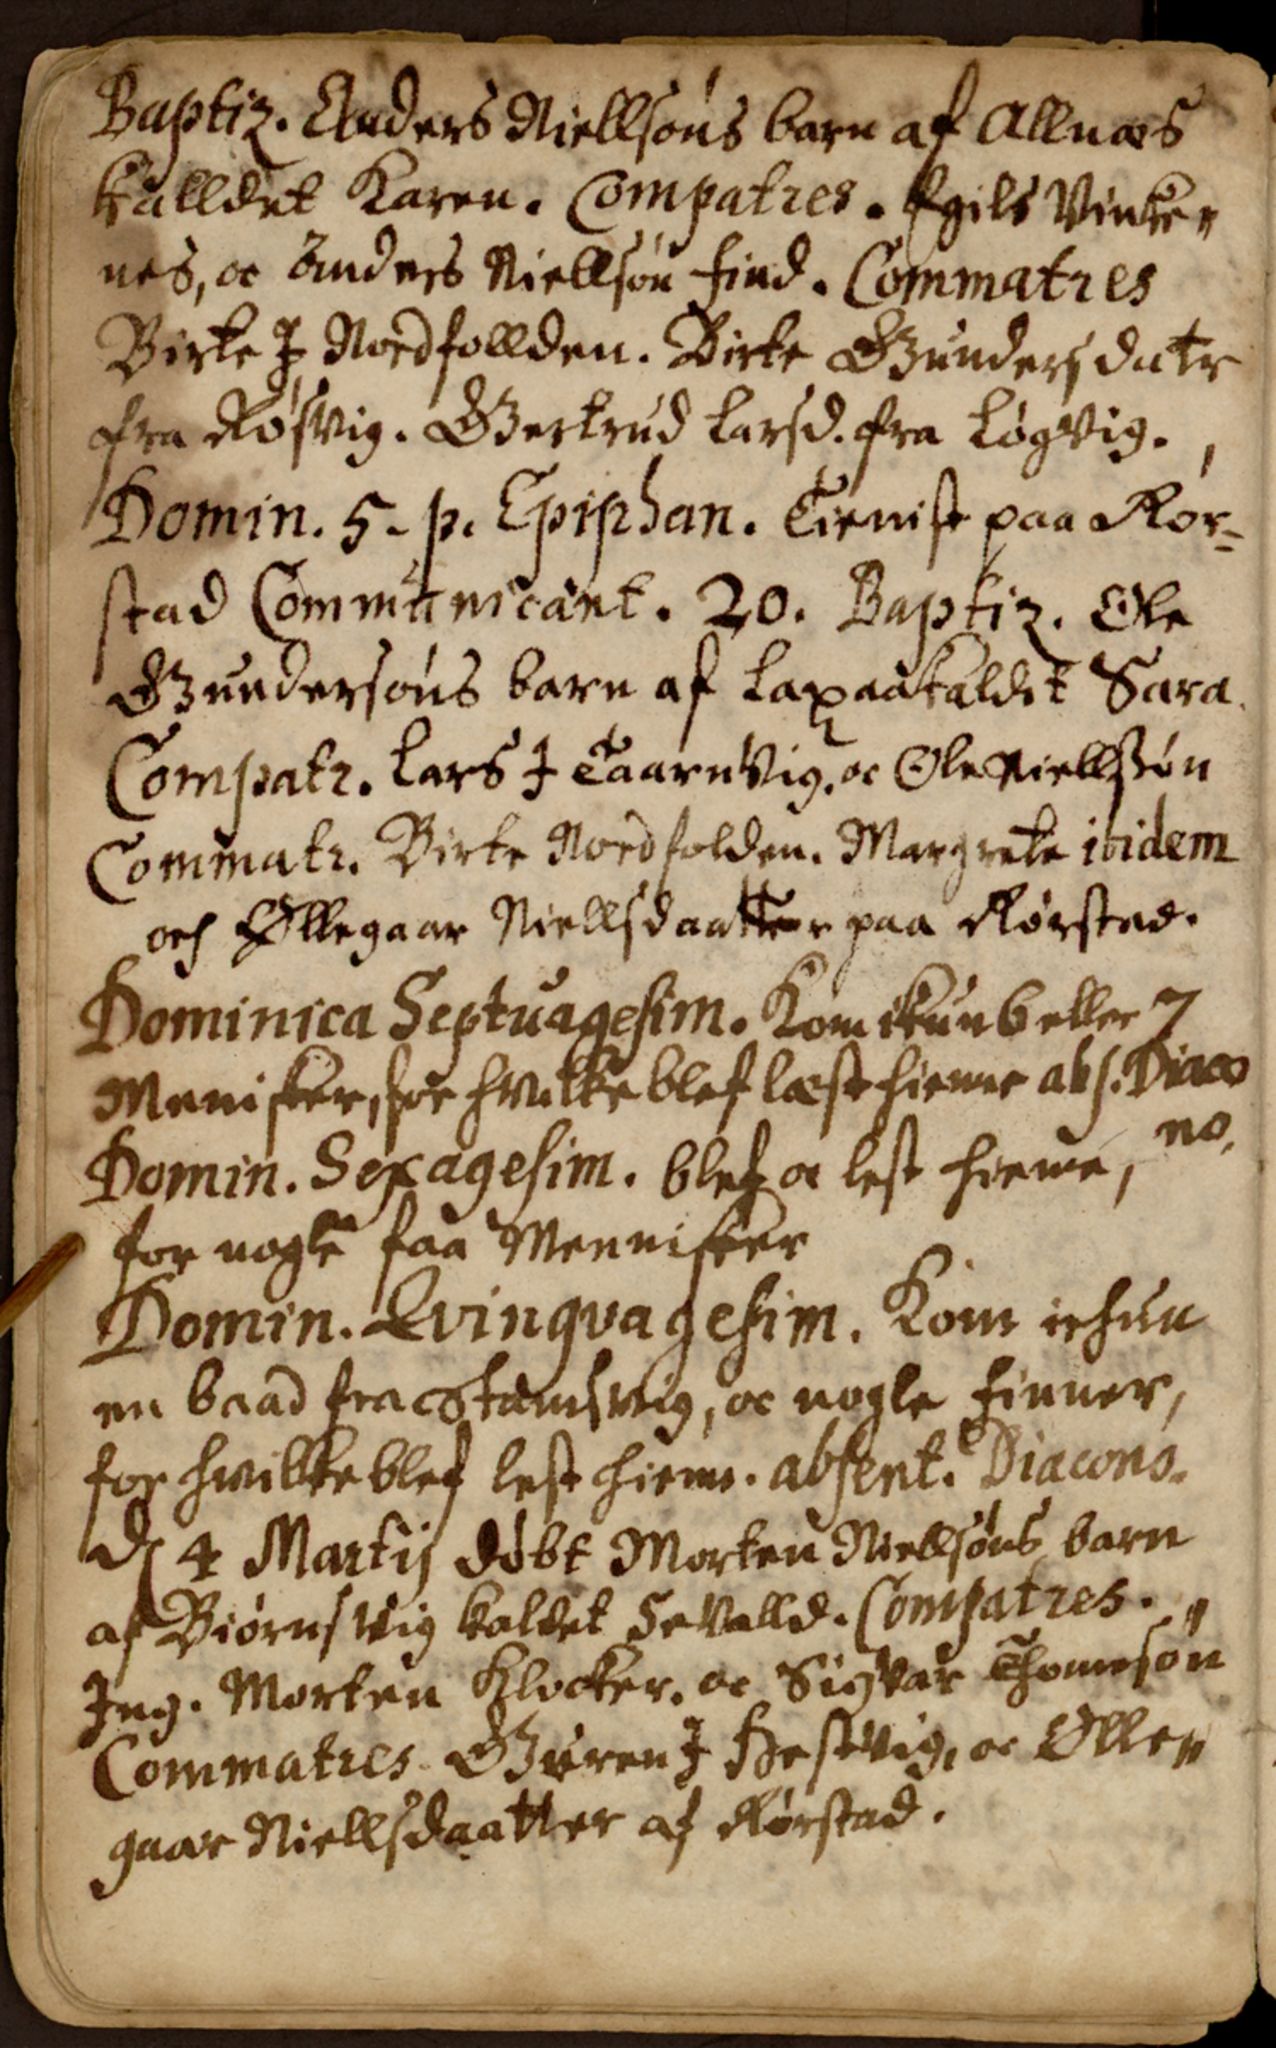 Baptiz. Anders Niellsøns barn af Allnæs
kalldet Karen. Compatres. Egils Vinke„
nes, oc Anders Niellsøn find. Commatres
Birte J Nordfollden. Birte Gundersdatr
fra Røsvig. Gertrud Larsd. fra Løgvig.
Domin. 5. p. Epiphan. Tienist paa Rør=
stad Communicant. 20. Baptiz. Ole
Gundersøns barn af Laxaa kaldet Sara.
Compatr. Lars J Taarnvig, oc Ole Niellssøn
Commatr. Birte Nordfolden. Margrete ibidem
och Ollegaar Niellsdaatter paa Rørstad.
Dominica Septuagesim. Kom ikun 6 eller 7
Menisker, for hvilke blef læst hieme abs. Diaco
no.
Domin. Sexagesim. blef oc lest hieme,
for nogle faa Mennisker
Domin. Qvinqvagesim. Kom ichun
en baad fra Stamsvig, oc nogle finner,
for hvilke blef lest hieme. absent. Diacono.
d 4 Martij døbt Morten Niellsøns barn
af Biørnsvig kaldet Sevalld. Compatres.
Ing. Morten Klocker. oc Sigvar Thomesøn
Commatres. Guren J Hestvig, oc Olle„
gaar Niellsdaatter af Rørstad.